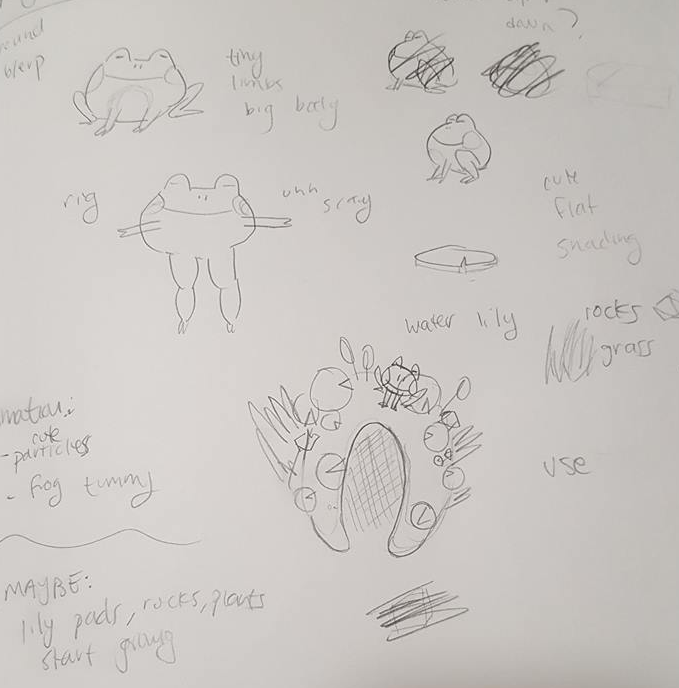 down?
tiny
limbs
big body
rig
uhh
scary
cute
flat
shading
water lily
rocks
grass
use
cute
- particles
- frog tummy
MAYBE:
lily pads, rocks, plants
start